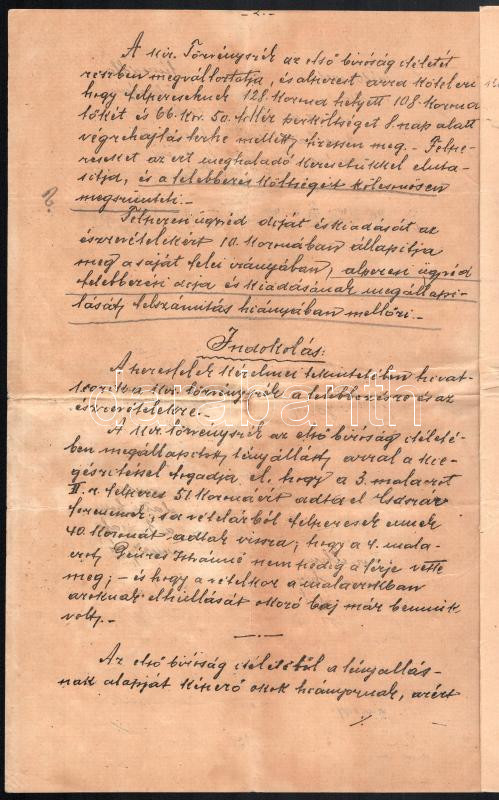 -2.-
A kir. Törvényszék az első biróság itéletét
részben megváltoztatja, és alperest arra kötelezi
hogy felpereseknek 128. korona helyett 108. korona
tőkét és 66. kor. 50. fillér perköltséget 8. nap alatt
végrehajtás terhe mellett, fizessen meg. - Felpe-
reseket az ezt meghaladó keresetükkel eluta-
sitja, és a felebbezés költségeit kölcsönösen
megszünteti. -
Felperesi ügyvéd diját és kiadásait az
észrevételekért 10. koronában állapitja
meg a saját felei irányában, alperesi ügyvéd
felebbezési dija és kiadásának megállapi-
tását, felszámitás hiányában mellőzi. -
Indokolás:
A peresfelek kérelmei tekintetében hivat-
kozik a kir. törvényszék a felebbezésre és az
észrevételekre. -
A kir. törvényszék az első biróság itéleté-
ben megállapitott tényállást, azzal a kie-
gészitéssel fogadja el, hogy a 3. malacot
II. r. felperes 51. koronáért adta el Császár
Ferencnek, s a vételárból felperesek ennek
40. koronát adtak vissza; hogy a 4. mala-
cot, Génczi Istvánné nem pedig a férje vette
meg; - és hogy a vételkor a malacokban
azoknak elhullását okozó baj már bennük
volt. -
Az első biróság itéletéből a tényállás-
nak alapját képező okok hiányoznak, azért
./.
darabanth